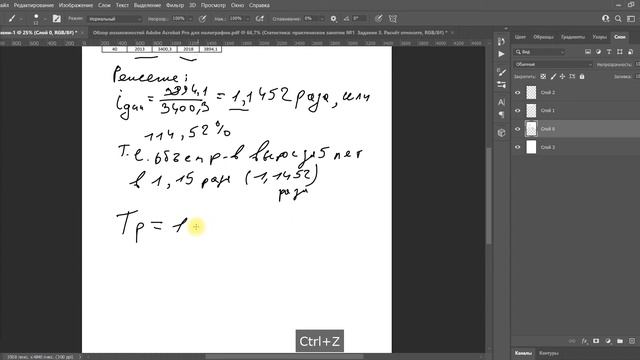 Файл Редактирование Изображение Слои Текст Выделение Фильтр 3D Просмотр Окно Справка
Режим: Нормальный Непрозр.: 100% Нажим: 100% Сглаживание: 0%
Обзор возможностей Adobe Acrobat Pro для полиграфии.pdf @ 66,7% (Статистика: практическое занятие №1 Задание 3. Расчёт относите, RGB/8#) *
40 2013 3400,3 2018 3894,1
Решение:
iдин = 3894,1 / 3400,3 = 1,1452 раза, или
114,52%
Т.е. объем пр-в вырос за 5 лет
в 1,15 раза (1,1452)
раза
Тр = 1
Ctrl+Z
Цвет
Образцы
Градиенты
Узоры
Свойства
Коррекция
Библиотеки
Слои
Вид
Обычные
Закрепить:
Слой 2
Слой 1
Слой 0
Слой 3
Каналы
Контуры